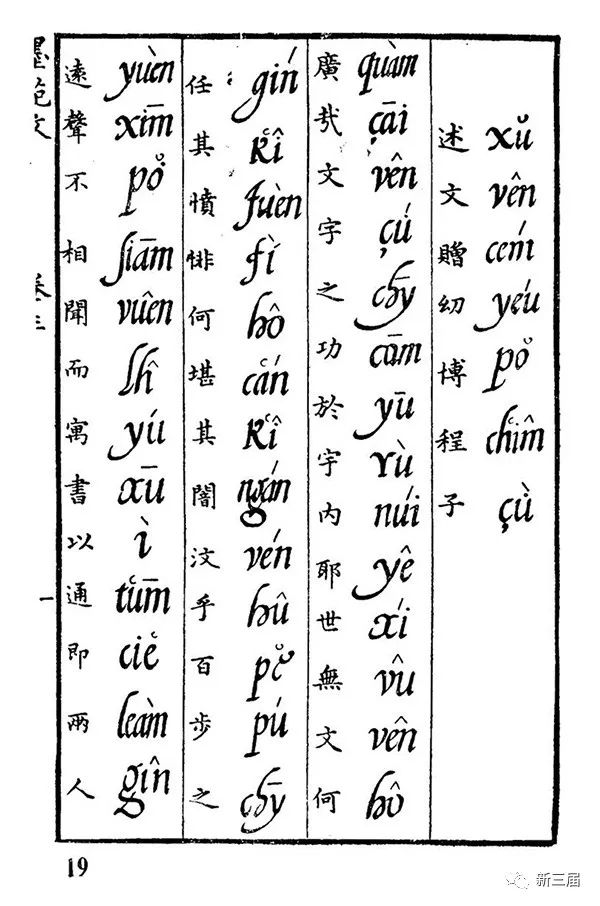 述文贈幼博程子
xŭ vên cém yéu pŏ̇ chı̔̂m çù
廣哉文字之功於宇內耶世無文何
quàm çāi vên çú chȳ cūm yū yù núi yê xí vû vên hô
任其憤悱何堪其闇汶乎百步之
gín k̔î fuèn fì hô c̔án k̔î ngán vén hû pĕ pú chȳ
遠聲不相聞而寓書以通即兩人
yuèn xīm pŏ̇ siām vuên lĥ yú xū ì t̔ūm ciĕ leàm gîn
一
19
新三届